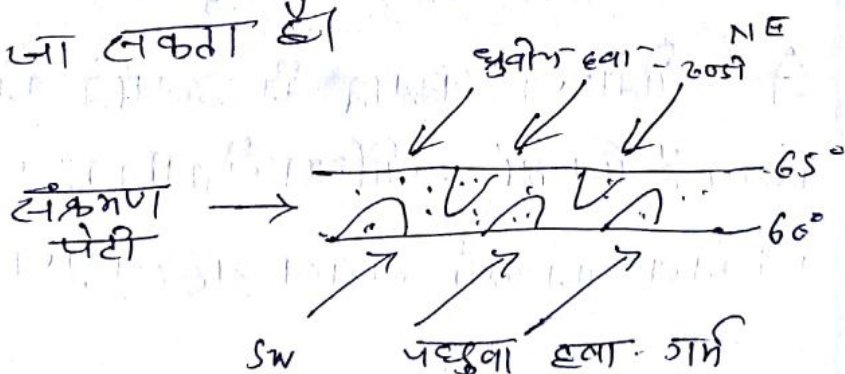 जा सकता है।
ध्रुवीय हवा - ठण्डी NE
65°
संक्रमण
पेटी
60°
SW पछुवा हवा - गर्म